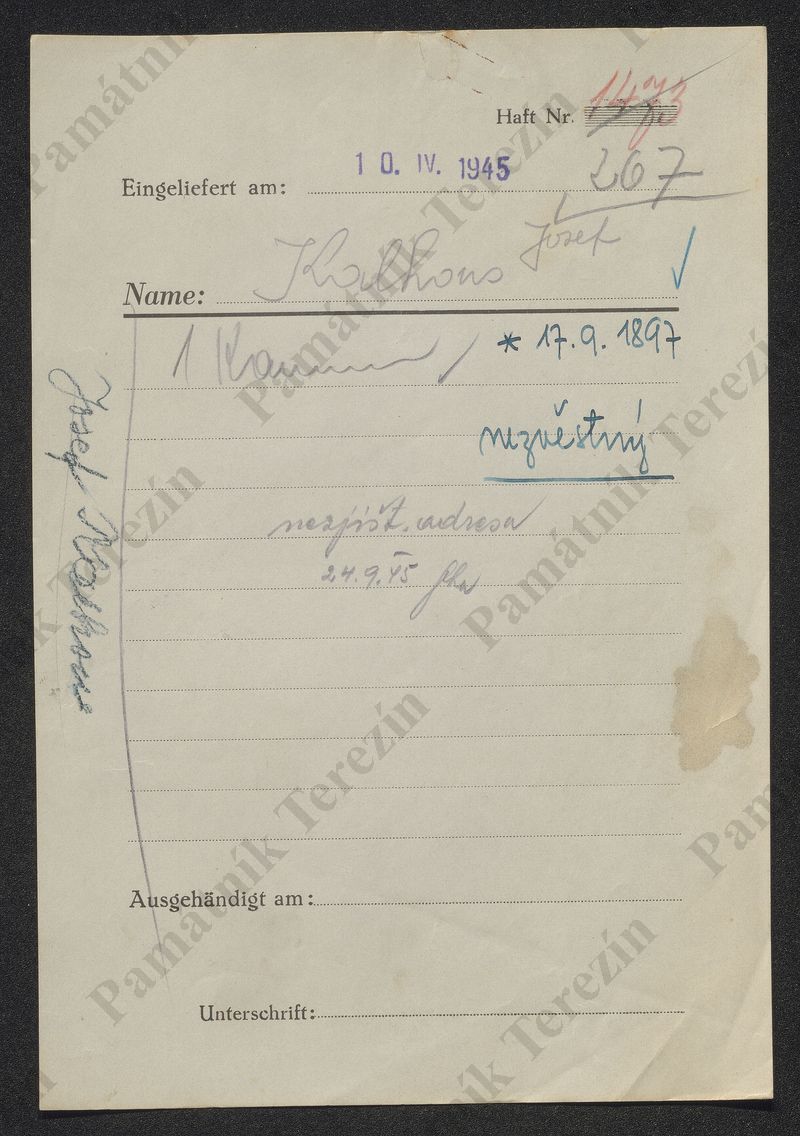 Haft Nr. 1473
267
Eingeliefert am: 10. IV. 1945
Name: Kalhous Josef
1 Kamm
* 17.9.1897
nezvěstný
nezjišt. adresa
24.9.45
Josef Kalhous
Ausgehändigt am:
Unterschrift:
Památník Terezín